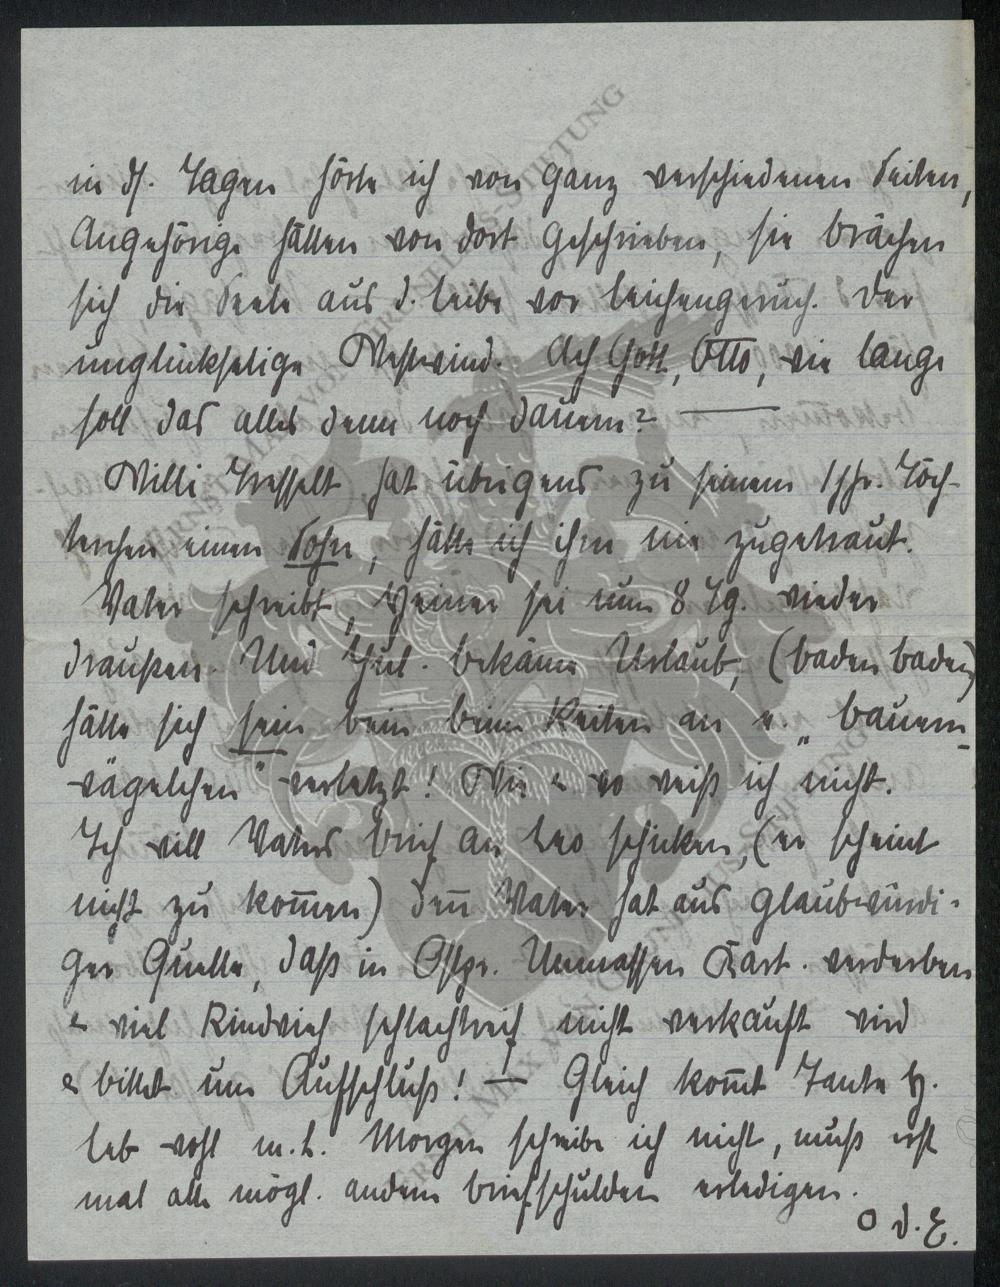 in ds. Tagen hörte ich von ganz verschiedenen Seiten,
Angehörige hätten von dort geschrieben, sie brächen
sich die Seele aus d. Leibe vor Leichengeruch. Der
unglückselige Westwind. Ach Gott, Otto, wie lange
soll das alles denn noch dauern? —
Willi hat übrigens zu seinem Töch-
terchen einen Sohn, hätte ich ihm nie zugetraut.
Vater schreibt, Heiner sei um 8 Tg. wieder
draußen. Und bekäme Urlaub, (Baden Baden)
hätte sich sein Bein beim Reiten an e. „Bauern-
wägelchen" verletzt! Wie & wo weiß ich nicht.
Ich will Vaters Brief an Leo schicken, (er scheint
nicht zu kom̅en) den̅ Vater hat aus glaubwürdi-
ger Quelle, daß in Ostpr. Unmassen Kart. verderben
& viel Rindvieh schlachtreif nicht verkauft wird
& bittet um Aufschluß! — Gleich kom̅t Tante H.
Leb wohl m. L. Morgen schreibe ich nicht, muß erst
mal alle mögl. andern Briefschulden erledigen.
O d. E.
ERNST MAX VON
STIFTUNG
ERNST MAX VON
STIFTUNG